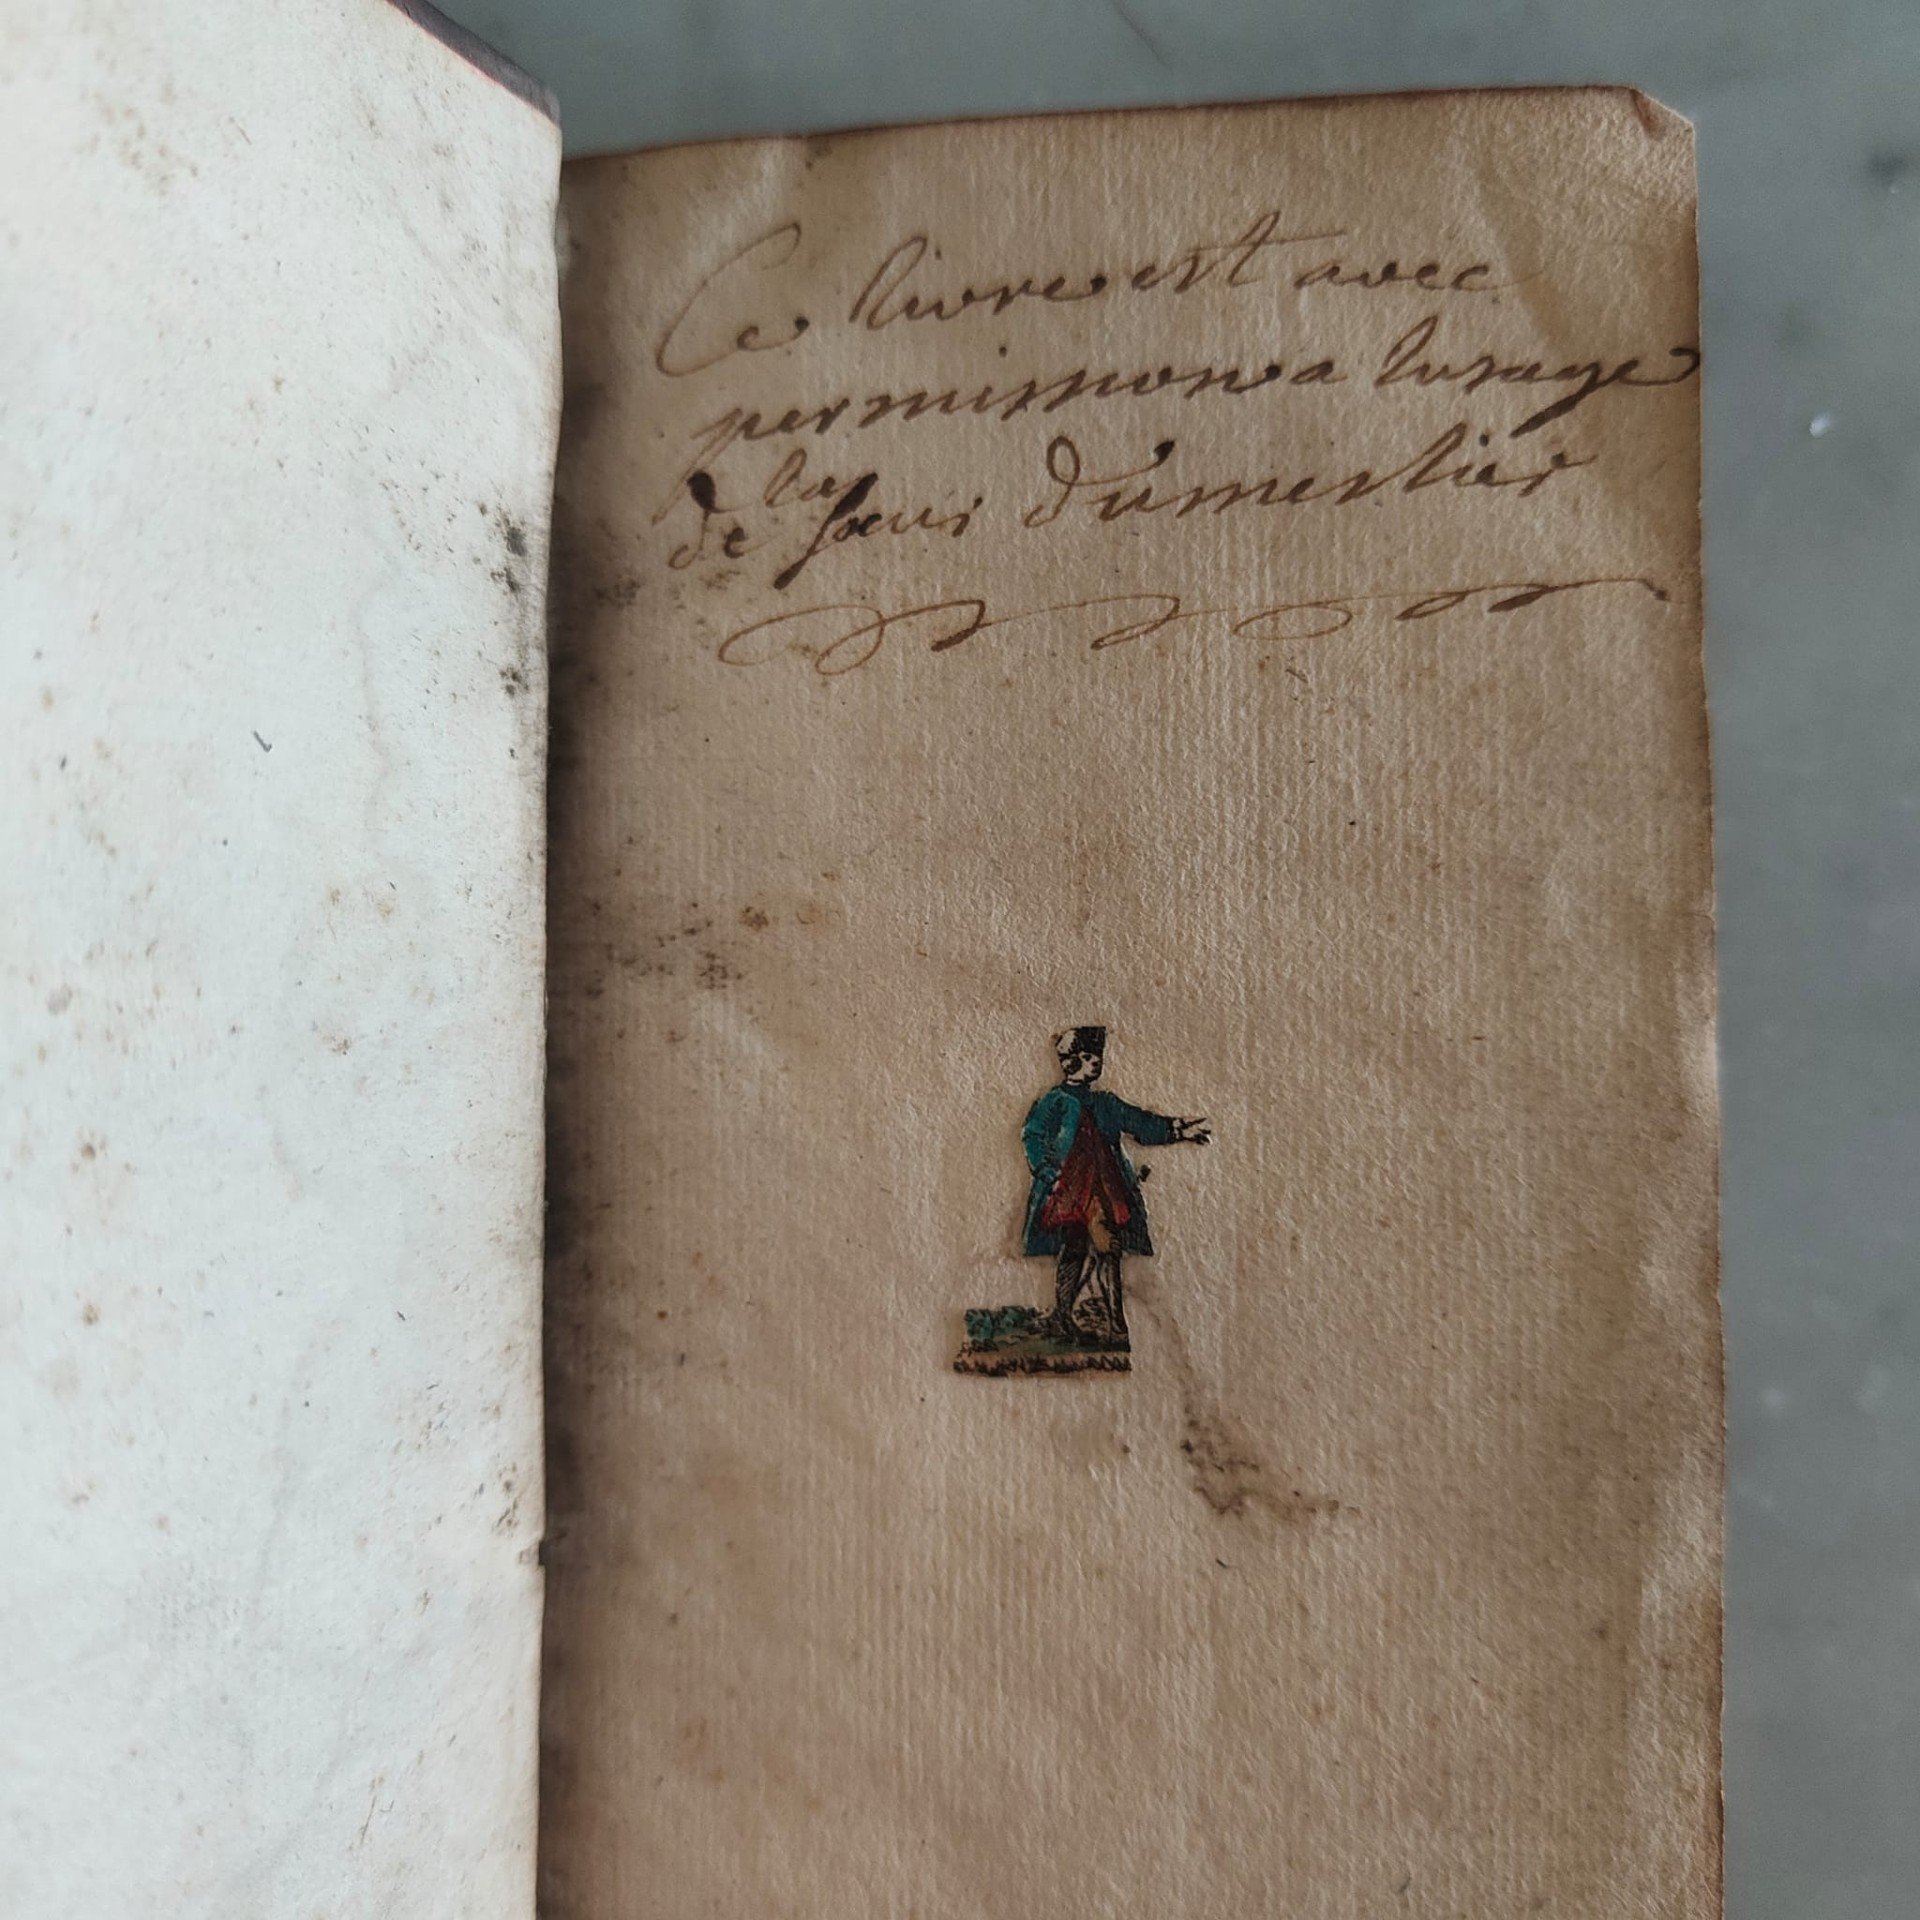 Ce livre est avec
permission a lusage
de la
de sœur dumestier